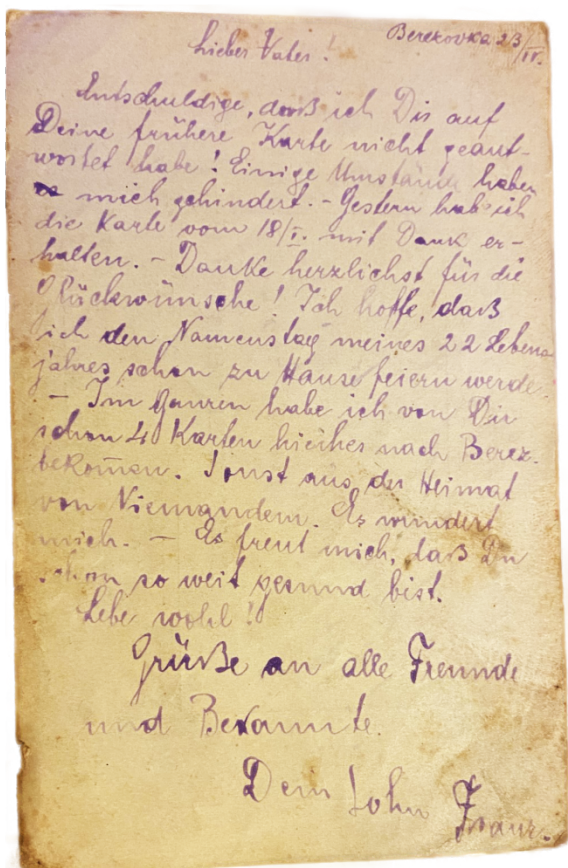 Berezovka 23/IV.
Lieber Vater!
Entschuldige, daß ich Dir auf
Deine frühere Karte nicht geant-
wortet habe! Einige Umstände haben
mich gehindert. - Gestern hab ich
die Karte vom 18/I. mit Dank er-
halten. - Danke herzlichst für die
Glückwünsche! Ich hoffe, daß
ich den Namenstag meines 22 Lebens
jahres schon zu Hause feiern werde.
- Im Ganzen habe ich von Dir
schon 4 Karten hieher nach Berez.
bekom̄en. Sonst aus der Heimat
von Niemandem. Es wundert
mich. - Es freut mich, daß Du
schon so weit gesund bist.
Lebe wohl!
Grüße an alle Freunde
und Bekannte.
Dein Sohn Franz.